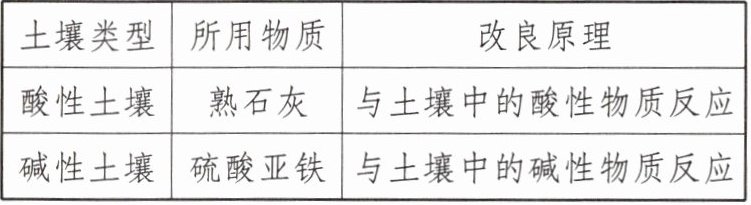 土壤类型 所用物质 改良原理
酸性土壤 熟石灰 与土壤中的酸性物质反应
碱性土壤 硫酸亚铁 与土壤中的碱性物质反应